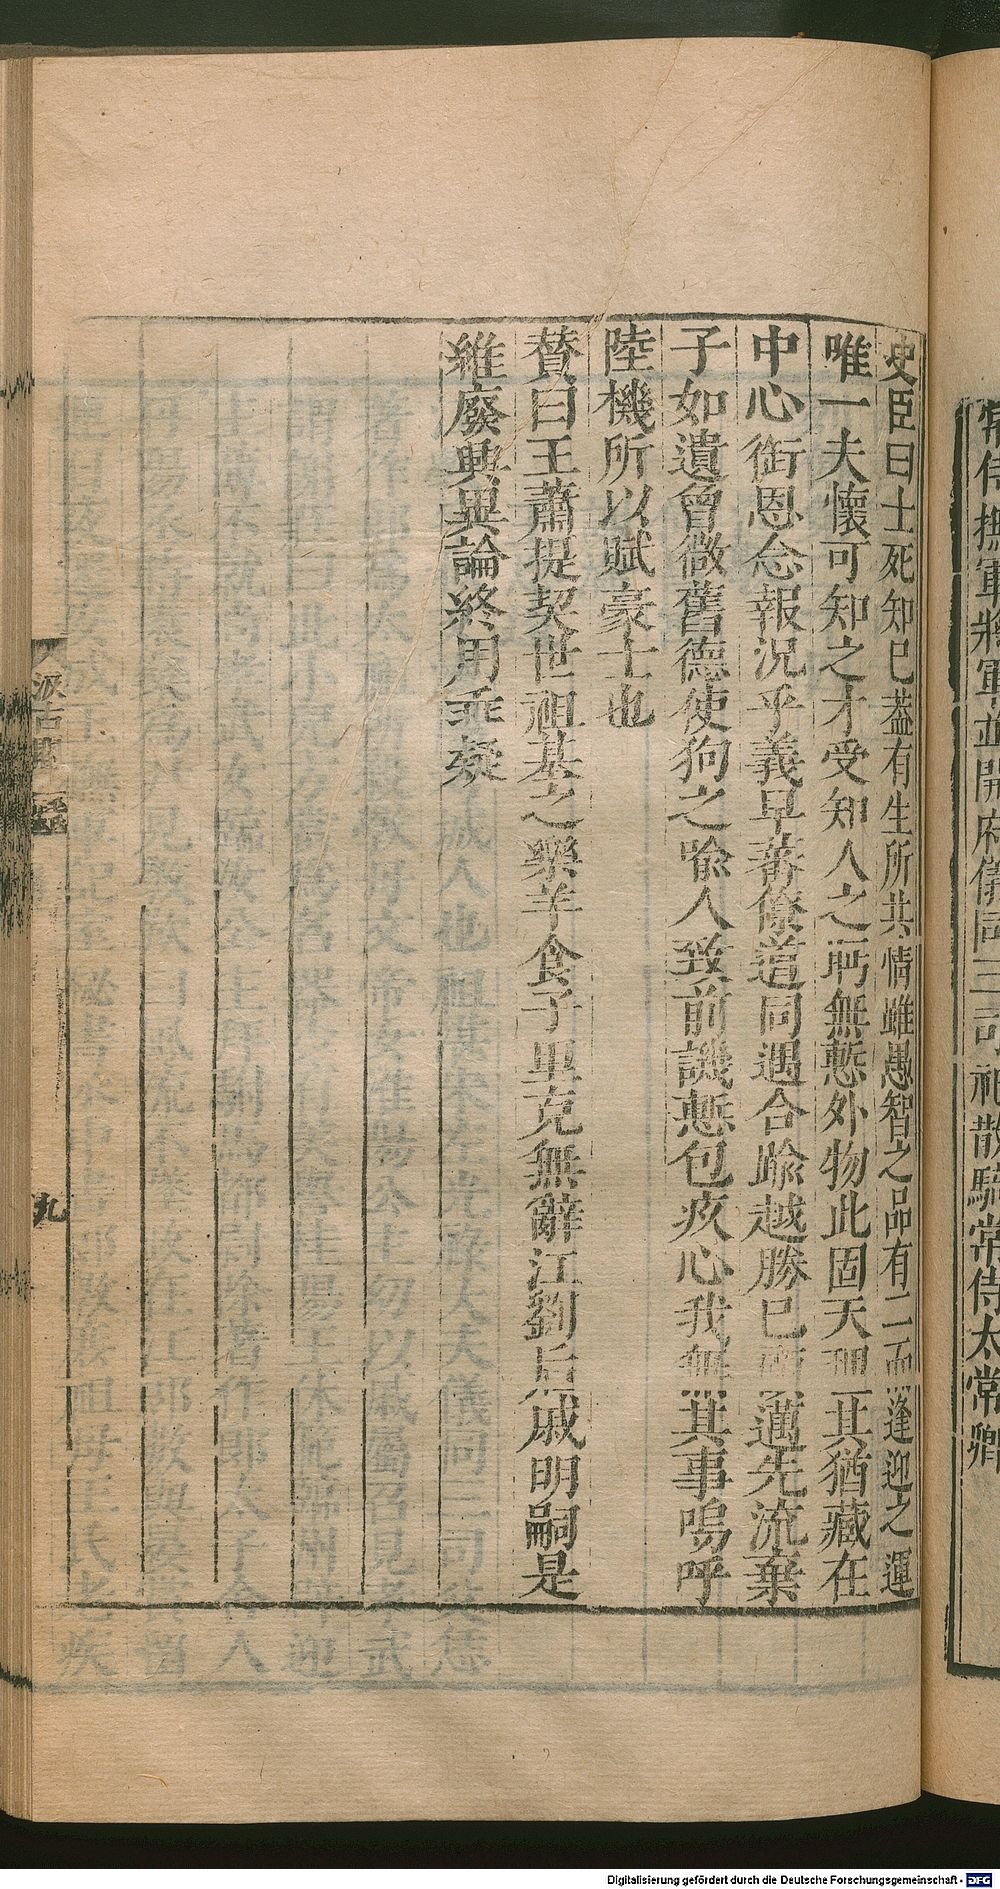 常侍撫軍將軍並開府儀同三司祀散騎常侍太常卿
史臣曰士死知巳蓋有生所共情雖愚智之品有二而逢迎之運
唯一夫懷可知之才受知人之眄無慙外物此固天理其猶藏在
中心銜恩念報況乎義早蕃僚道同遇合踰越勝巳邁先流棄
子如遺曾微舊德使狗之喻人致前譏慙包疚心我無其事嗚呼
陸機所以賦豪士也
贊曰王蕭提契世祖基之樂羊食子里克無辭江劉后戚明嗣是
維廢興異論終用乖疑
汲古閣
九
Digitalisierung gefördert durch die Deutsche Forschungsgemeinschaft - DFG